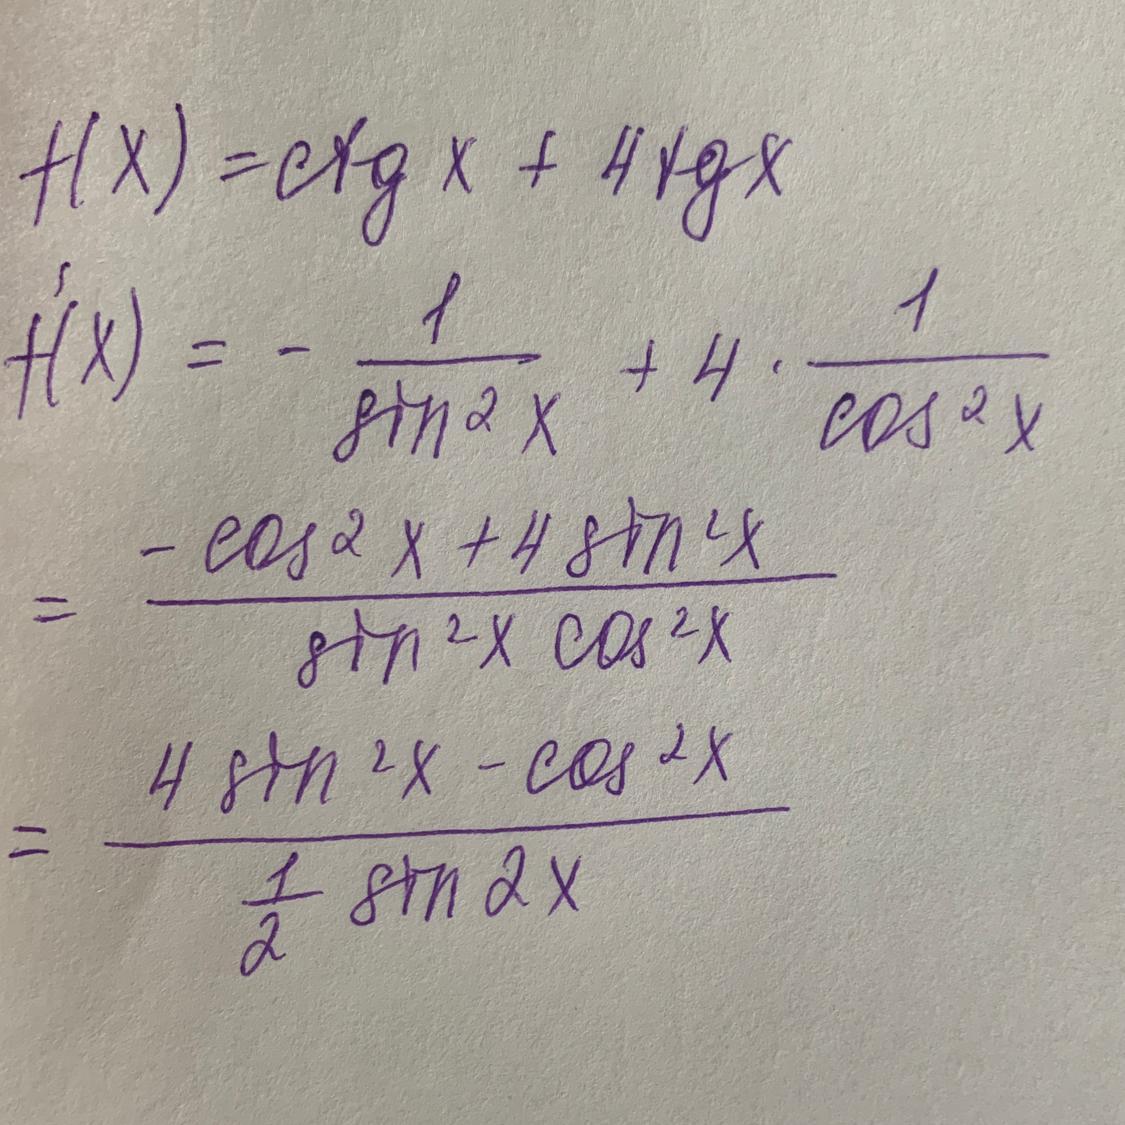 f(x) = ctg x + 4 tg x
f'(x) = - 1/sin²x + 4 · 1/cos²x
= (-cos²x + 4 sin²x)/(sin²x cos²x)
= (4 sin²x - cos²x)/(1/2 sin 2x)